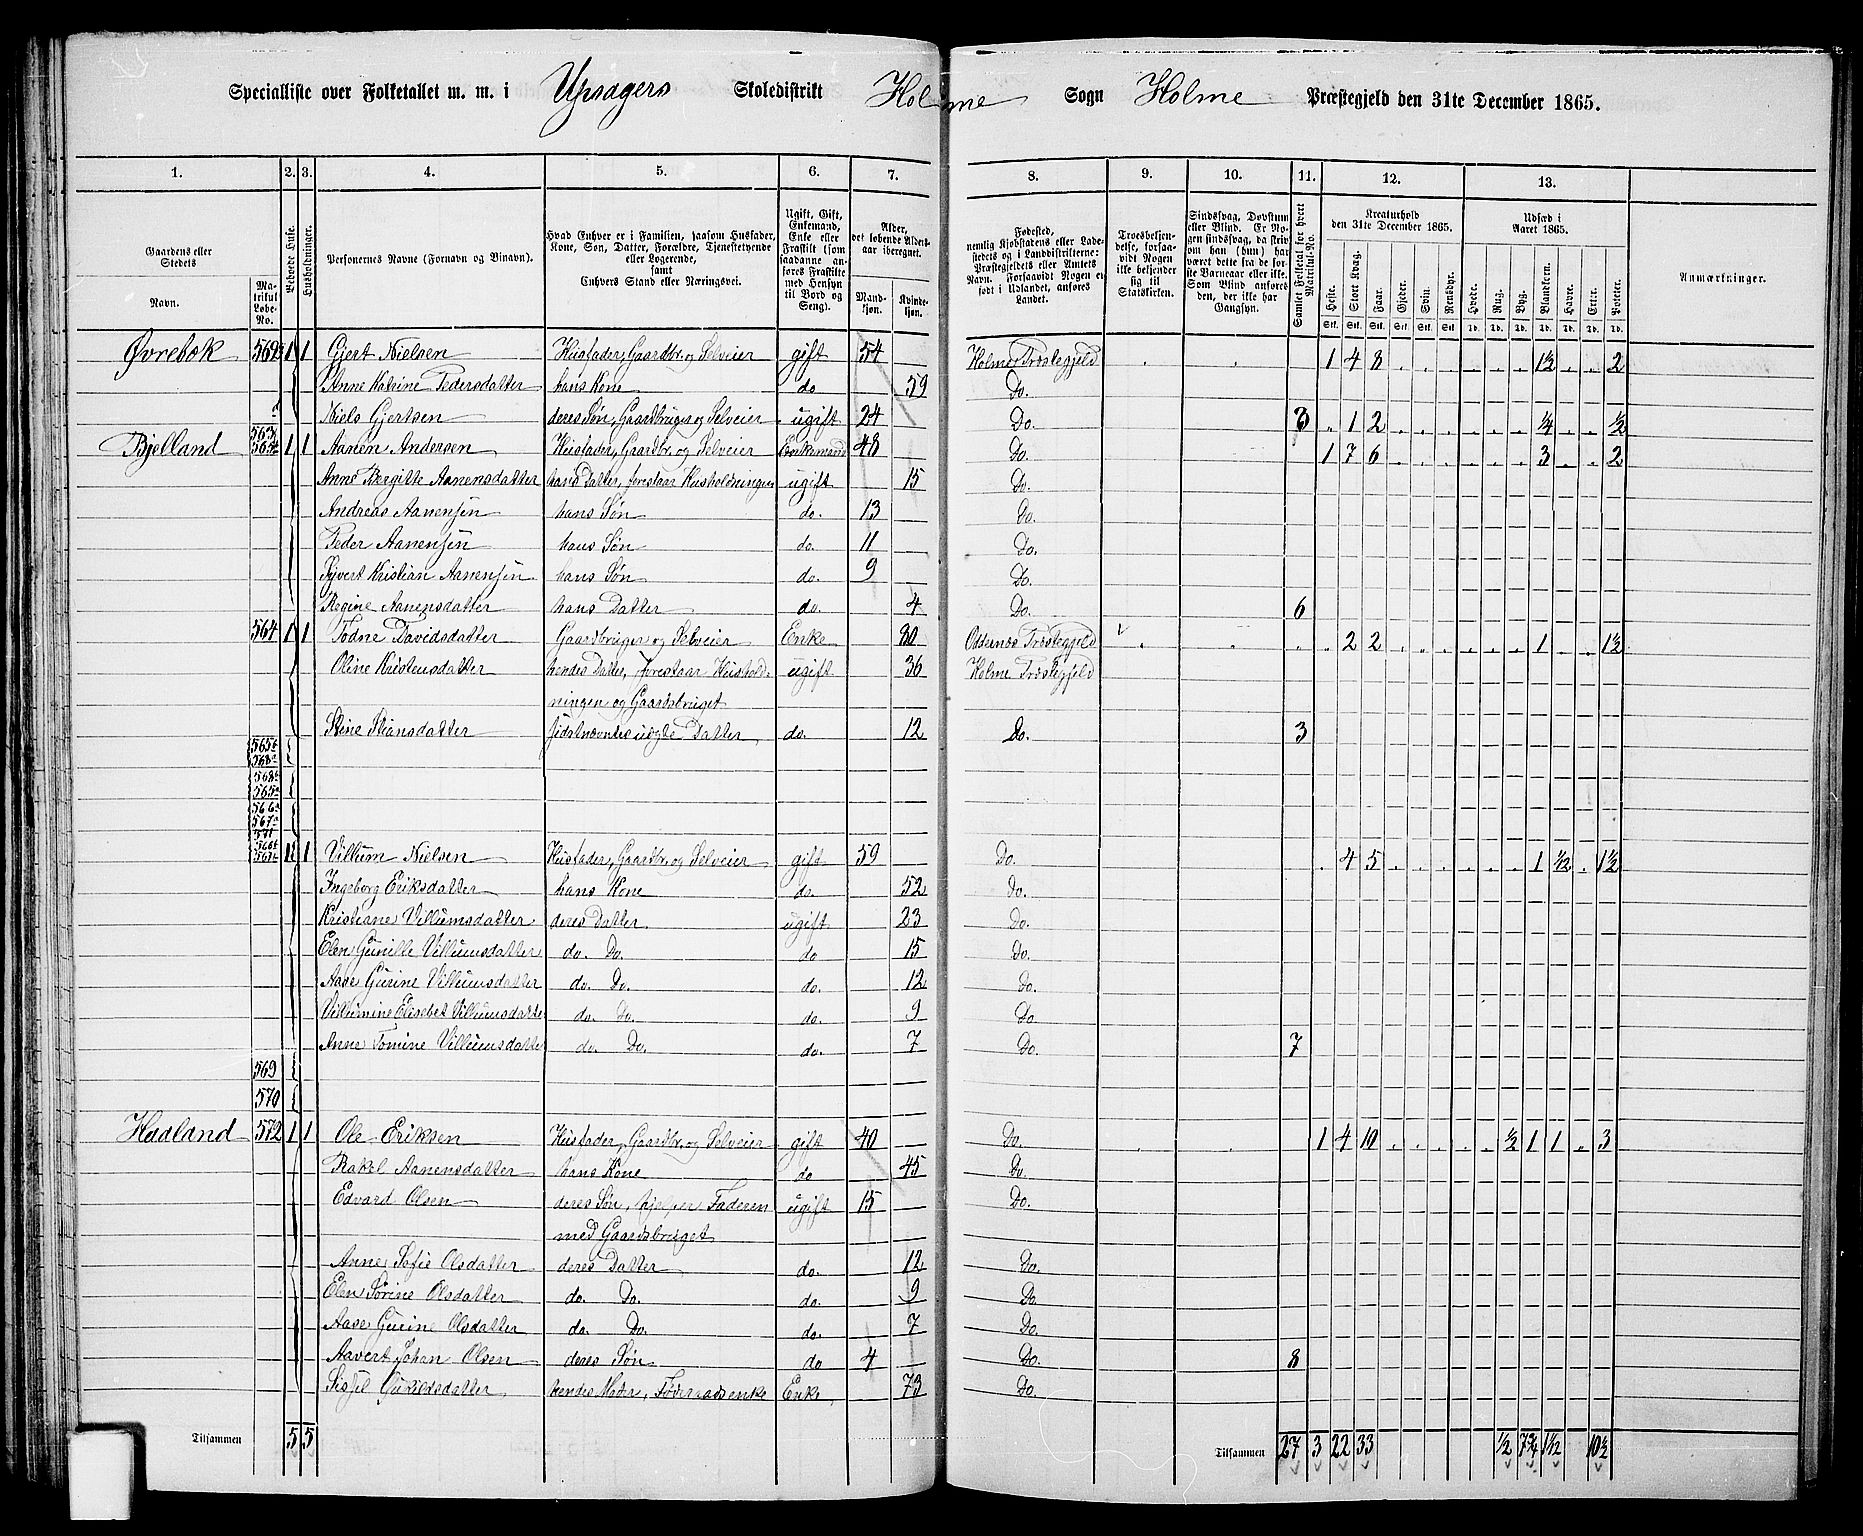 Specialliste over Folketallet m. m. i Upsagers Skoledistrikt Holme Sogn Holme Præstegjeld den 31te December 1865.
1. 2. 3. 4. 5. 6. 7. 8. 9. 10. 11. 12. 13.
Gaardens eller Stedets
Navn.
Matrikul Løbe-No.
Beboede Huse.
Husholdninger.
Personernes Navne (Fornavn og Binavn).
Hvad Enhver er i Familien, saasom Husfader, Kone, Søn, Datter, Forældre, Tjenestetyende eller Logerende, samt Enhvers Stand eller Næringsvei.
Ugift, Gift, Enkemand, Enke eller Fraskilt (som saadanne anføres Fraskilte med Hensyn til Bord og Seng).
Alder, det løbende Aldersaar iberegnet.
Mandkjøn. Kvindekjøn.
Fødested, nemlig Kjøbstadens eller Ladestedets og i Landdistrikterne: Præstegjeldets eller Amtets Navn. Forsaavidt Nogen er født i Udlandet, anføres Landet.
Troesbekjendelse, forsaavidt Nogen ikke bekjender sig til Statskirken.
Sindssvag, Døvstum eller Blind. Er Nogen sindssvag, da skrives om han (hun) har været dette fra de første Barneaar eller ikke. Som Blind anføres den, der ikke har Gangsyn.
Samlet Folketal for hvert Matrikul-No.
Kreaturhold den 31te December 1865.
Heste. Stort Kvæg. Faar. Gjeder. Svin. Rensdyr.
Udsæd i Aaret 1865.
Hvede. Rug. Byg. Blandkorn. Havre. Erter. Poteter.
Stk. Stk. Stk. Stk. Stk. Stk. Td. Td. Td. Td. Td. Td. Td.
Anmærkninger.
Øvrebok 562 1 1 Gjert Nielsen Husfader, Gaardbr. og Selveier gift 54 Holme Præstegjeld 1 4 8 1½ 2
Anne Katrine Pedersdatter hans Kone do 59 Do.
Niels Gjertsen deres Søn, Gaardbruger og Selveier ugift 24 Do. 3 1 2 ¼ ½
563
Bjelland 1 1 Aanen Andersen Husfader, Gaardbr. og Selveier Enkemand 48 Do. 1 7 6 3 2
Anne Bergitte Aanensdatter hans Datter, forestaar Husholdningen ugift 15 Do.
Andreas Aanensen hans Søn do. 13 Do.
Peder Aanensen hans Søn do. 11 Do.
Syvert Kristian Aanensen hans Søn do. 9 Do.
Regine Aanensdatter hans Datter do. 4 Do. 6
564 1 1 Todne Davidsdatter Gaardbruger og Selveier Enke 80 Oddernes Præstegjeld 2 2 1 1½
Oline Kristensdatter hendes Datter, forestaar Hushold- ugift 36 Holme Præstegjeld
ningen og Gaardsbruget
Stine Stiansdatter sidstnævntes uægte Datter do. 12 Do. 3
565
568
568
565
566
567
571
1 1 Villum Nielsen Husfader, Gaardbr. og Selveier gift 59 Do. 4 5 1 ½ 1½
Ingeborg Eriksdatter hans Kone do 52 Do.
Kristiane Villumsdatter deres Datter ugift 23 Do.
Elen Gunille Villumsdatter do. Do. do 15 Do.
Aase Gurine Villumsdatter do. Do. do. 12 Do.
Villumine Elisebet Villumsdatter do. Do. do. 9 Do
Anne Tomine Villumsdatter do. Do. do. 7 Do. 7
569
570
Haaland 572 1 1 Ole Eriksen Husfader, Gaardbr. og Selveier gift 40 Do. 1 4 10 ½ 1 1 3
Rakel Aanensdatter hans Kone do 45 Do.
Edvard Olsen deres Søn, hjelper Faderen ugift 15 Do.
med Gaardsbruget
Anne Sofie Olsdatter deres Datter do. 12 Do.
Elen Sørine Olsdatter do. Do. do. 9 Do.
Aase Gurine Olsdatter do. Do. do. 7 Do.
Aavert Johan Olsen deres Søn do 4 Do. 8
Sissel Gunildsdatter hendes Moder, Føderaadsenke Enke 73 Do.
Tilsammen 5 5 Tilsammen 27 3 22 33 ½ 7¾ 1½ 10½